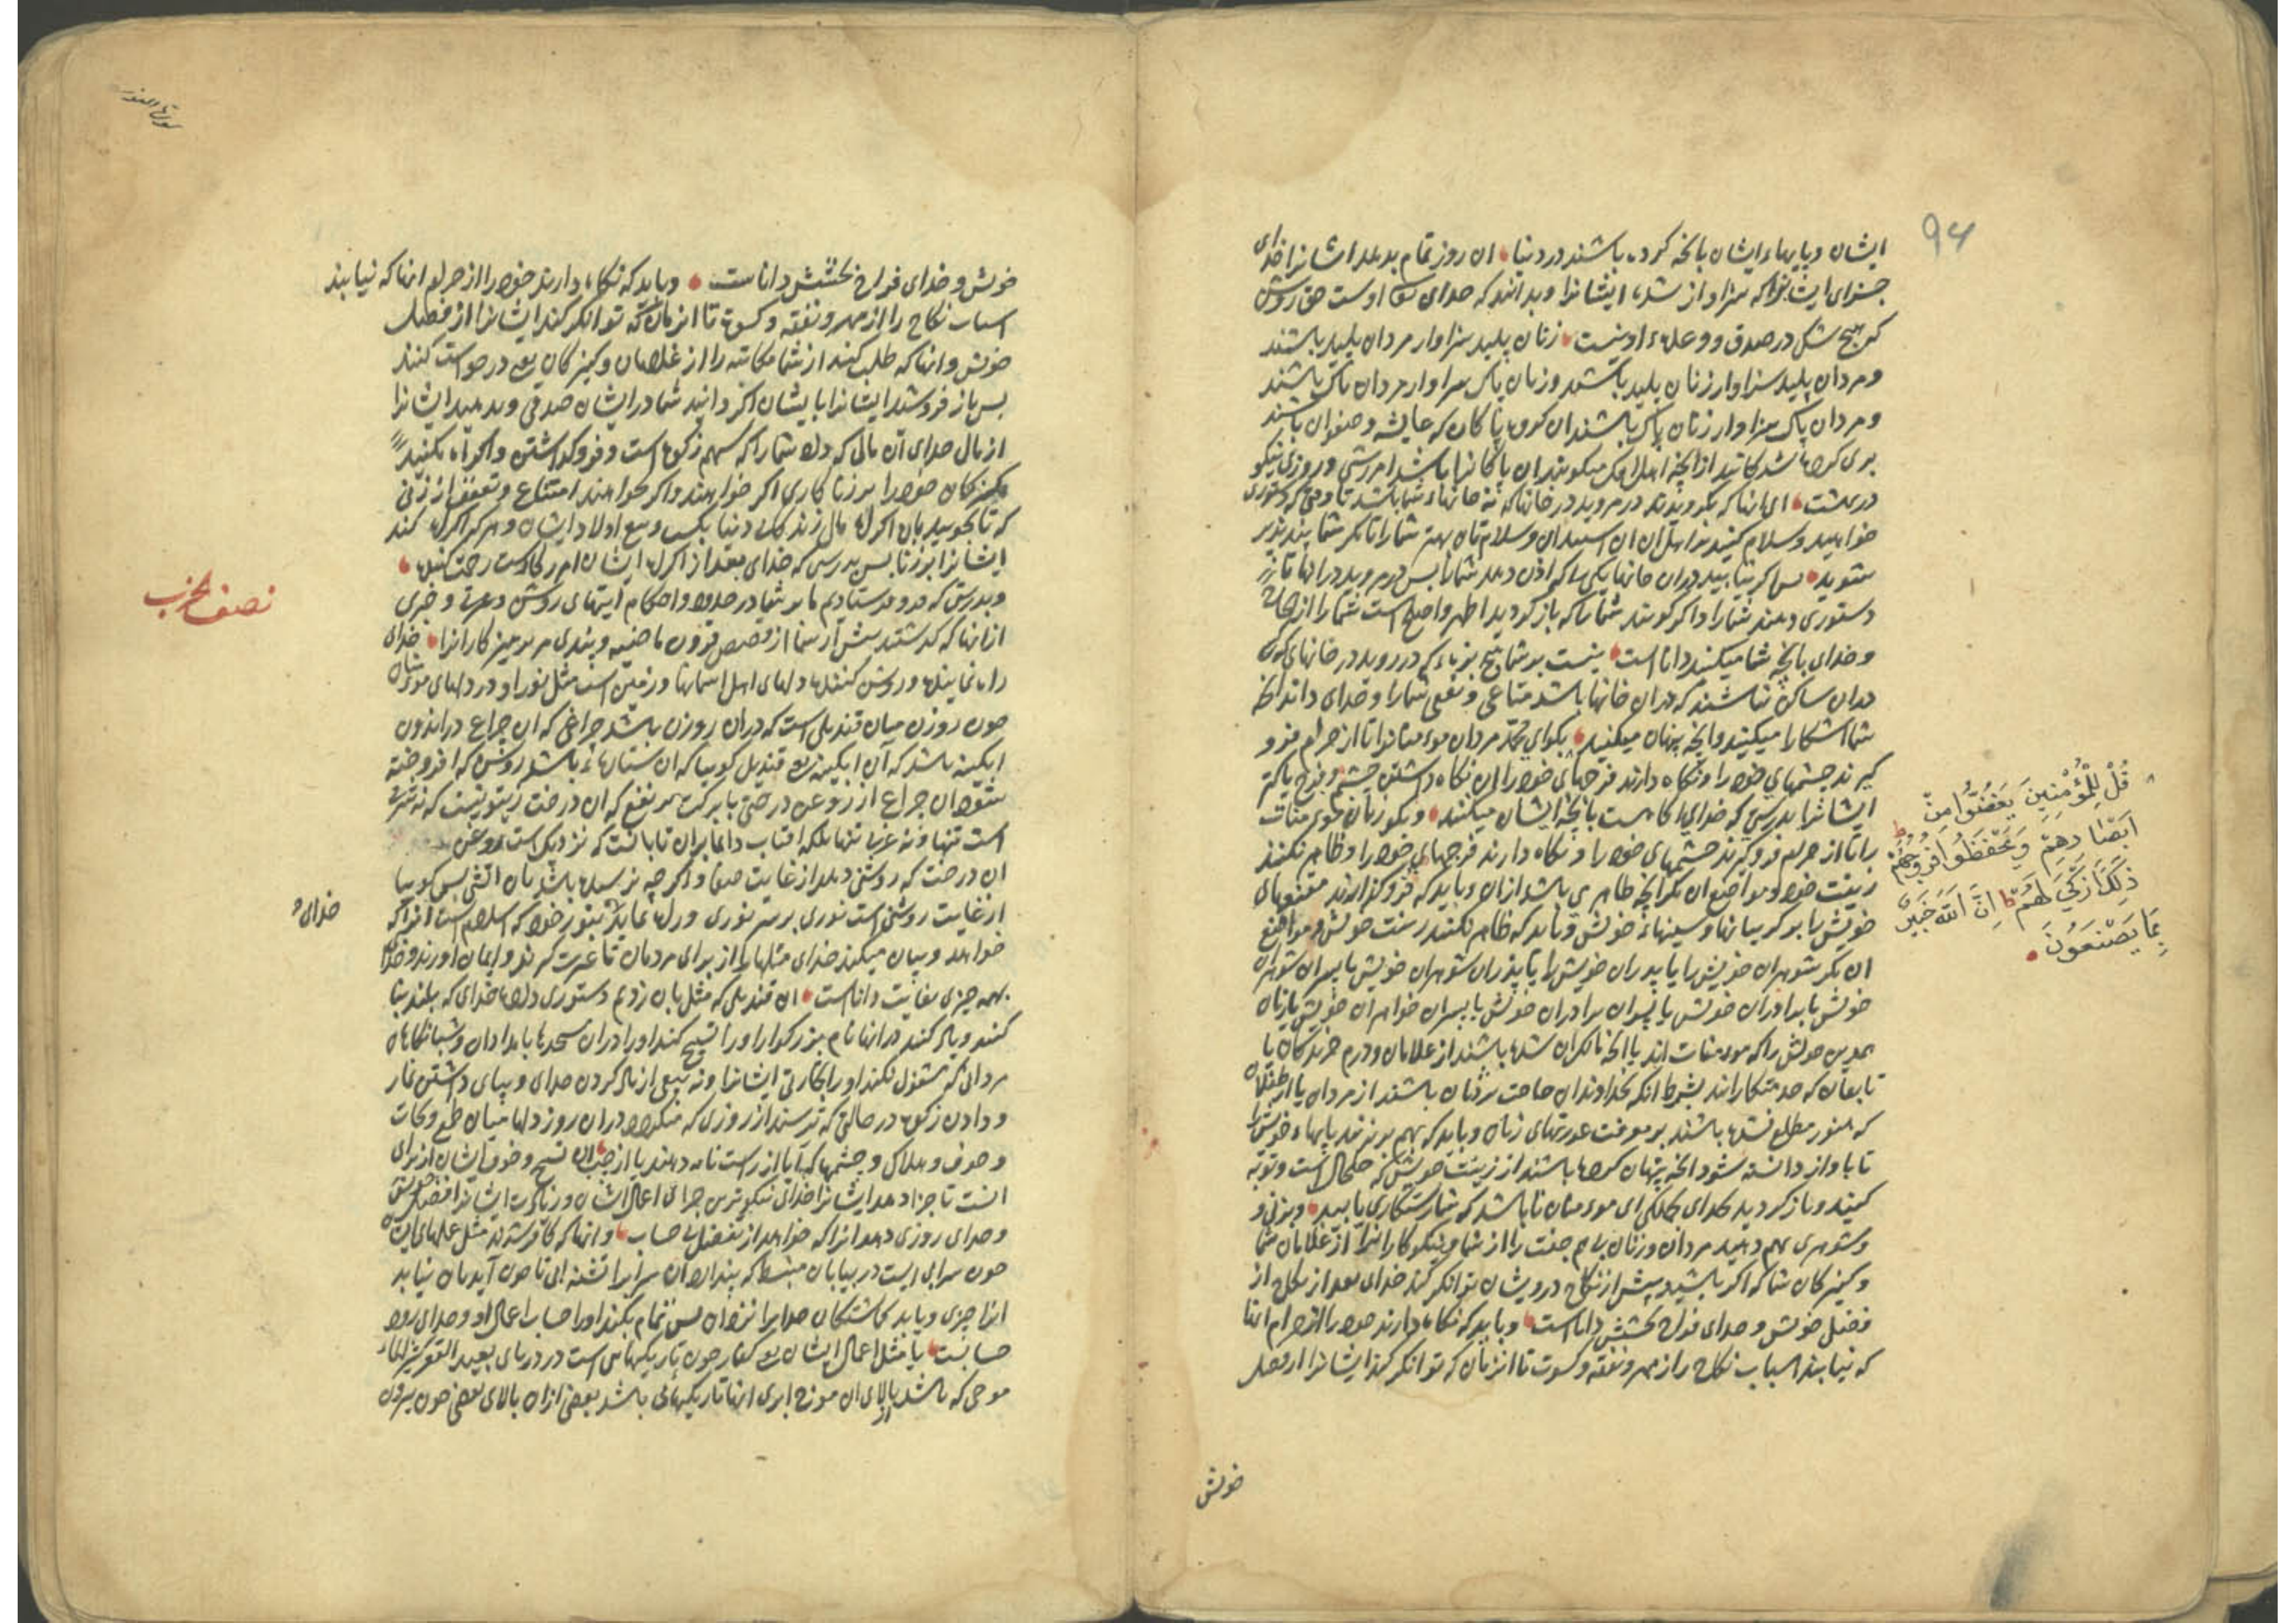 94
ایشان و پایهاء ایشان بانچه کرده باشند در دنیا ان روز تمام بدهد ایشانرا خدای
جزای ایشانرا که سزاوار شده ایشانرا و بدانند که خدای اوست حق روشن
که هیچ شک در صدق وعدهاء او نیست زنان پلید سزاوار مردان پلید باشند
و مردان پلید سزاوار زنان پلید باشند و زنان پاک سزاوار مردان پاک باشند
و مردان پاک سزاوار زنان پاک باشند ان کروه پاکان که عایشه و صفوان باشند
بری کرده شدکانید از انچه اهل افک میکویند ان پاکانرا باشد امرزشی و روزی نیکو
در بهشت ای انها که بکرویدند در مروید در خانها که نه خانهاء شما باشد تا وقتی که دستوری
خواهید و سلام کنید بر اهل ان ان استیذان و سلام تان بهتر شما را تا مکر شما پند پذیر
شوید پس اکر نیابید دران خانها یکی را که اذن دهد شما را پس در مروید در انها تا
دستوری دهند شما را و اکر کویند شما را که باز کردید اطهر و اصلح است شما را از
و خدای بانچه شما میکنید دانا است نیست بر شما هیچ بزه که در روید در خانهای که
دران ساکن نباشند که دران خانها باشد متاعی و نفعی شما را و خدای داند انچه
شما اشکارا میکنید و انچه پنهان میکنید بکوای محمد مردان مومنانرا تا از حرام فرو
کیرند چشمهای خود را و نکاه دارند فرجهای خود را ان نکاه داشتن چشم و فرج پاکتر
ایشانرا بدرستی که خدای اکاهست بانچه ایشان میکنند و بکو زنان مومنات
را تا از حرام فرو کیرند چشمهای خود را و نکاه دارند فرجهای خود را و ظاهر نکنند
زینت خود و مواضع ان مکر انچه ظاهری باشد ازان و باید که فرو کذارند مقنعهای
خویش را بر کریبانها و سینهاء خویش و باید که ظاهر نکنند زینت خویش و مواضع
ان مکر شوهران خویش را یا پدران خویش را یا پدران شوهران خویش یا پسران شوهران
خویش یا برادران خویش یا پسران برادران خویش یا پسران خواهران خویش یا زنان
خویش را که مومنات اند یا انچه مالک ان شده باشند از غلامان و درم خریدکان یا
تابعان که خدمتکارانند بشرط انکه خداوندان حاجت بزنان نباشند از مردان یا از طفلان
که هنوز مطلع نشده باشند بر عورتهای زنان و باید که بهم بر نزنند پایهاء خویش را
تا باواز دانسته شود انچه پنهان کرده باشند از زینت خویش که خلخال است و توبه
کنید و باز کردید بخدای همکی ای مومنان تا باشد که شما رستکاری یابید و بزنی و
و شوهری بهم دهید مردان و زنان بی جفت را از شما و نیکوکارانرا از غلامان شما
و کنیزکان شما که اکر باشید پیش از نکاح درویشان توانکر کند خدای بعد از نکاح از
فضل خویش و خدای فراخ بخشش داناست و باید که نکاه دارند خود را از حرام انها
که نیابند اسباب نکاح را از مهر و نفقه و کسوت تا انزمان که توانکر کند ایشانرا از فضل
خویش
قُلْ لِلْمُؤْمِنِينَ يَغُضُّوا مِنْ
اَبْصَارِهِمْ وَيَحْفَظُوا فُرُوجَهُمْ ط
ذٰلِكَ اَزْكٰى لَهُمْ ط اِنَّ اللّٰهَ خَبِيرٌ
بِمَا يَصْنَعُونَ
سورة النور
خویش و خدای فراخ بخشش داناست و باید که نکاه دارند خود را از حرام انها که نیابند
اسباب نکاح را از مهر و نفقه و کسوت تا انزمان که توانکر کند ایشانرا از فضل
خویش و انها که طلب کنند از شما مکاتبه را از غلامان و کنیزکان یعنی درخواست کنند
پس باز فروشید ایشانرا بایشان اکر دانید شما در ایشان صدقی و بدهید ایشانرا
از مال خدای آن مالی که داد شما را که سهم زکوة است و فرو کذاشتن و اکراه مکنید
کنیزکان خود را بر زنا کاری اکر خواهند واکر نخواهند امتناع و تعفف از زنی
که تا بجویید بان اکراه مال زندکانی دنیا بکسب و بیع اولاد ایشان و هر که اکراه کند
ایشانرا بر زنا پس بدرستی که خدای بعد از اکراه ایشان امرزکارست رحمت کننده
و بدرستی که فرو فرستادیم ما بر شما در حدود و احکام ایتهای روشن و خبری
از انها که کذشتند پیش از شما از قصص قرون ماضیه و پندی مر پرهیزکارانرا خدای
راه نماینده و روشن کننده دلهای اهل اسمانها و زمین است مثل نور او در دلهای مومنان
چون روزن میان قندیلی است که دران روزن باشد چراغی که ان چراغ در اندرون
ابکینه باشد که آن ابکینه قندیل کوییا که ان ستارهاء باشد روشن که افروخته
شود ان چراغ از روغن درختی با برکت پر نفع که ان درخت زیتونست که نه شرقی
است تنها و نه غربی تنها بلکه افتاب دایما بران تابانست که نزدیک است روغن
ان درخت که روشنی دهد از غایت صفا و اکرچه نرسیده باشد بان اتشی پس کوییا
از غایت روشنی است نوری بر سر نوری و راه نماید بنور خود که اسلام است انرا که
خواهد و بیان میکند خدای مثلها را از برای مردمان تا عبرت کیرند و ایمان اورند و خدای
بهمه چیزی بغایت داناست ان قندیلی که مثل بان زدیم دستوری داده خدای که بلند بنا
کنند و یاد کنند در انها نام بزرکوار او را و تسبیح کند او را دران مسجدها بامدادان و شبانکاهان
مردانی که مشغول نکند او را تجارتی ایشانرا و نه بیعی از یاد کردن خدای و بپای داشتن نماز
و دادن زکوة در حالتی که ترسند از روزی که میکردد دران روز دلها میان طمع و نجات
و خوف و هلاک و چشمها که آیا از راست نامه دهند یا از چپ ان تسبیح و خوف ایشان از برای
انست تا جزا دهد ایشانرا خدای نیکوترین جزای اعمال ایشان و زیادت ایشانرا از فضل خویش
و خدای روزی دهد انرا که خواهد از تفضل بی حساب و انها که کافر شدند مثل عملهای ایشان
چون سرابی است در بیابان منبسط که پندارد ان سراب را تشنه ابی تا چون آید بان نیابد
انرا چیزی و یابد کماشتکان خدایرا نزد ان پس تمام بکند او را حساب اعمال او و خدای زود
حسابست یا مثل اعمال ایشان چون تاریکیهاء است در دریای بعید القعر
موجی که باشد بالای ان موج ابری انها تاریکیهائی باشد بعضی ازان بالای بعضی چون بیرون
نصف الحزب
خدای